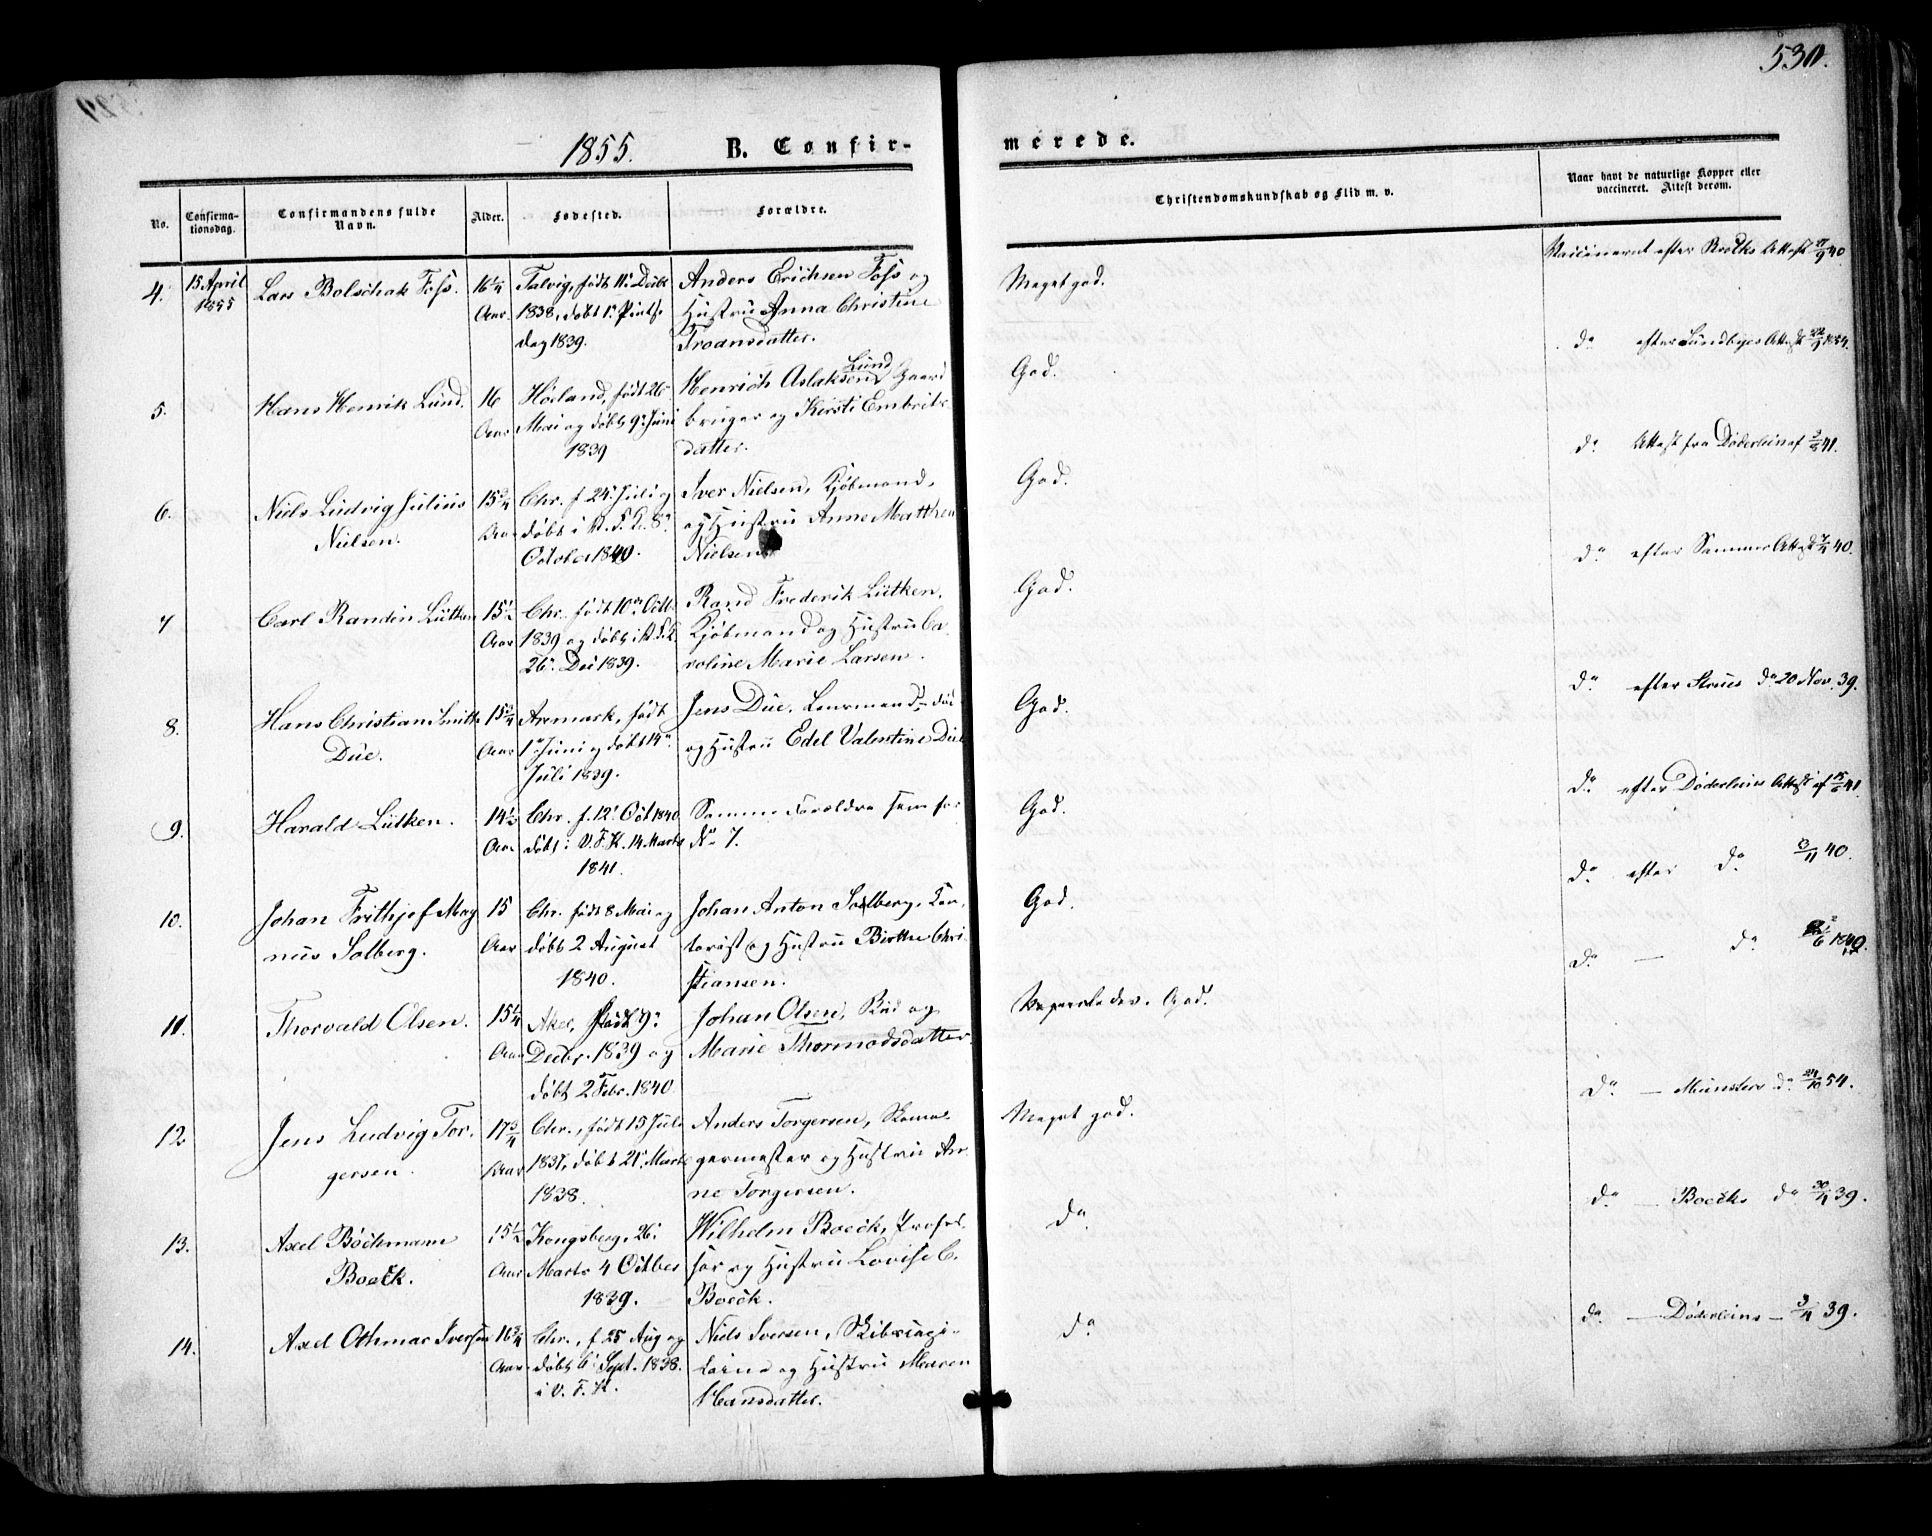 530.
1855. B. Confirmerede.
No. Confirmationsdag. Confirmandens fulde Navn. Alder. Fødested. Forældre. Christendomskundskab og Flid m. v. Naar havt de naturlige Kopper eller vaccineret. Attest derom.
4. 15 April 1855 Lars Bolschak Foss. 16 1/4 Aar.
Talvig, født 11. Decbr
1838, døbt 1. Pintse
dag 1839.
Anders Erichsen Foss og
Hustru Anna Christine
Troansdatter.
Meget god.
Vaccineret efter Attest 40
5. Hans Henrik Lund. 16 Aar
Høland, født 26
Mai og døbt 9. Juni
1839
Henrich Aslaksen Lund Gaard
bruger og Kirsti Embrets
datter.
God.
do efter Lundbyes Attest 1854.
6. Niels Ludvig Julius
Nielsen.
15 3/4 Aar
Chr. f. 24. Juli og
døbt i V. F. K. 8.
October 1840.
Iver Nielsen, Kjøbmand,
og Hustru Anne Matthea
Nielsen
God.
do Attest fra Døderlein af 41.
7 Carl Randin Lütken 15 1/2 Aar
Chr. født 10de Octb.
1839 og døbt i V. F. K.
26. Dec 1839.
Rand Frederik Lütken,
Kjøbmand og Hustru Ca-
roline Marie Larsen.
God.
do efter Attest 40.
8. Hans Christian Smith
Due.
15 3/4 Aar
Aremark, født
1. Juni og døbt 14.
Juli 1839.
Jens Due, Lensmand
og Hustru Edel Valentine Due
God.
do efter do 20 Nov. 39.
9. Harald Lütken. 14 1/2 Aar
Chr. f. 12. Oct 1840
døbt i V. F. K. 14 Marts
1841.
Samme Forældre som for
No 7.
God.
do efter Døderleins Attest af 41.
10. Johan Frithjof Mag
nus Solberg.
15 Aar
Chr. født 8 Mai og
døbt 2 August
1840.
Johan Anton Solberg, Con-
torist og Hustru Birthe Chri-
stiansen.
God.
do efter do 40.
11. Thorvald Olsen. 15 1/4 Aar
Aker, født 9.
Decbr. 1839 og
døbt 2 Febr. 1840
Johan Olsen, Bud og
Marie Thormodsdatter.
God.
do — do 1840.
12 Jens Ludvig Tor-
gersen.
17 3/4 Aar
Chr., født 15 Juli
1837, døbt 21. Marts
1838.
Anders Torgersen, Skoma-
germester og Hustru An-
ne Torgersen.
Meget god.
do — Münsters do 54.
13. Axel Böchmann
Boeck.
15 1/2 Aar
Kongsberg, 26.
Marts 4 Octber
1839.
Wilhelm Boeck, Profes-
sor og Hustru Lovise C.
Boeck.
do
do — Boecks do 39.
14. Axel Othmar Iversen 16 3/4 Aar
Chr., f. 25 Aug og
døbt 6. Sept. 1838.
i V. F. K.
Niels Iversen,
og Hustru Maren
Hansdatter.
do
do — Døderleins — 3/4 39.